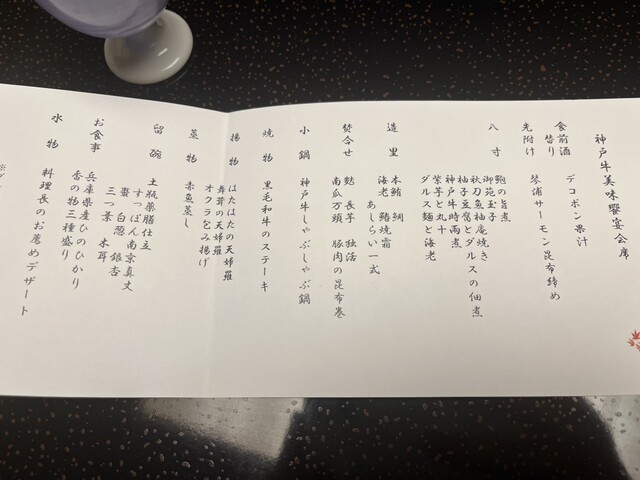 神戸牛美味饗宴会席
食前酒替り デコポン果汁
先附け 琴浦サーモン昆布締め
八寸 鮑の旨煮
御苑玉子
秋刀魚柚庵焼き
柚子豆腐とダルスの佃煮
神戸牛時雨煮
紫芋と丸十
ダルス麺と海老
造里 本鮪 鯛
海老 鰆焼霜
あしらい一式
焚合せ 麩 長芋 独活
南瓜万頭 豚肉の昆布巻
小鍋 神戸牛しゃぶしゃぶ鍋
焼物 黒毛和牛のステーキ
揚物 はたはたの天婦羅
舞茸の天婦羅
オクラ包み揚げ
蒸物 赤魚蒸し
留椀 土瓶薬膳仕立
すっぽん南京真丈
棗 白葱 銀杏
三つ葉 木耳
お食事 兵庫県産ひのひかり
香の物三種盛り
水物 料理長のお薦めデザート